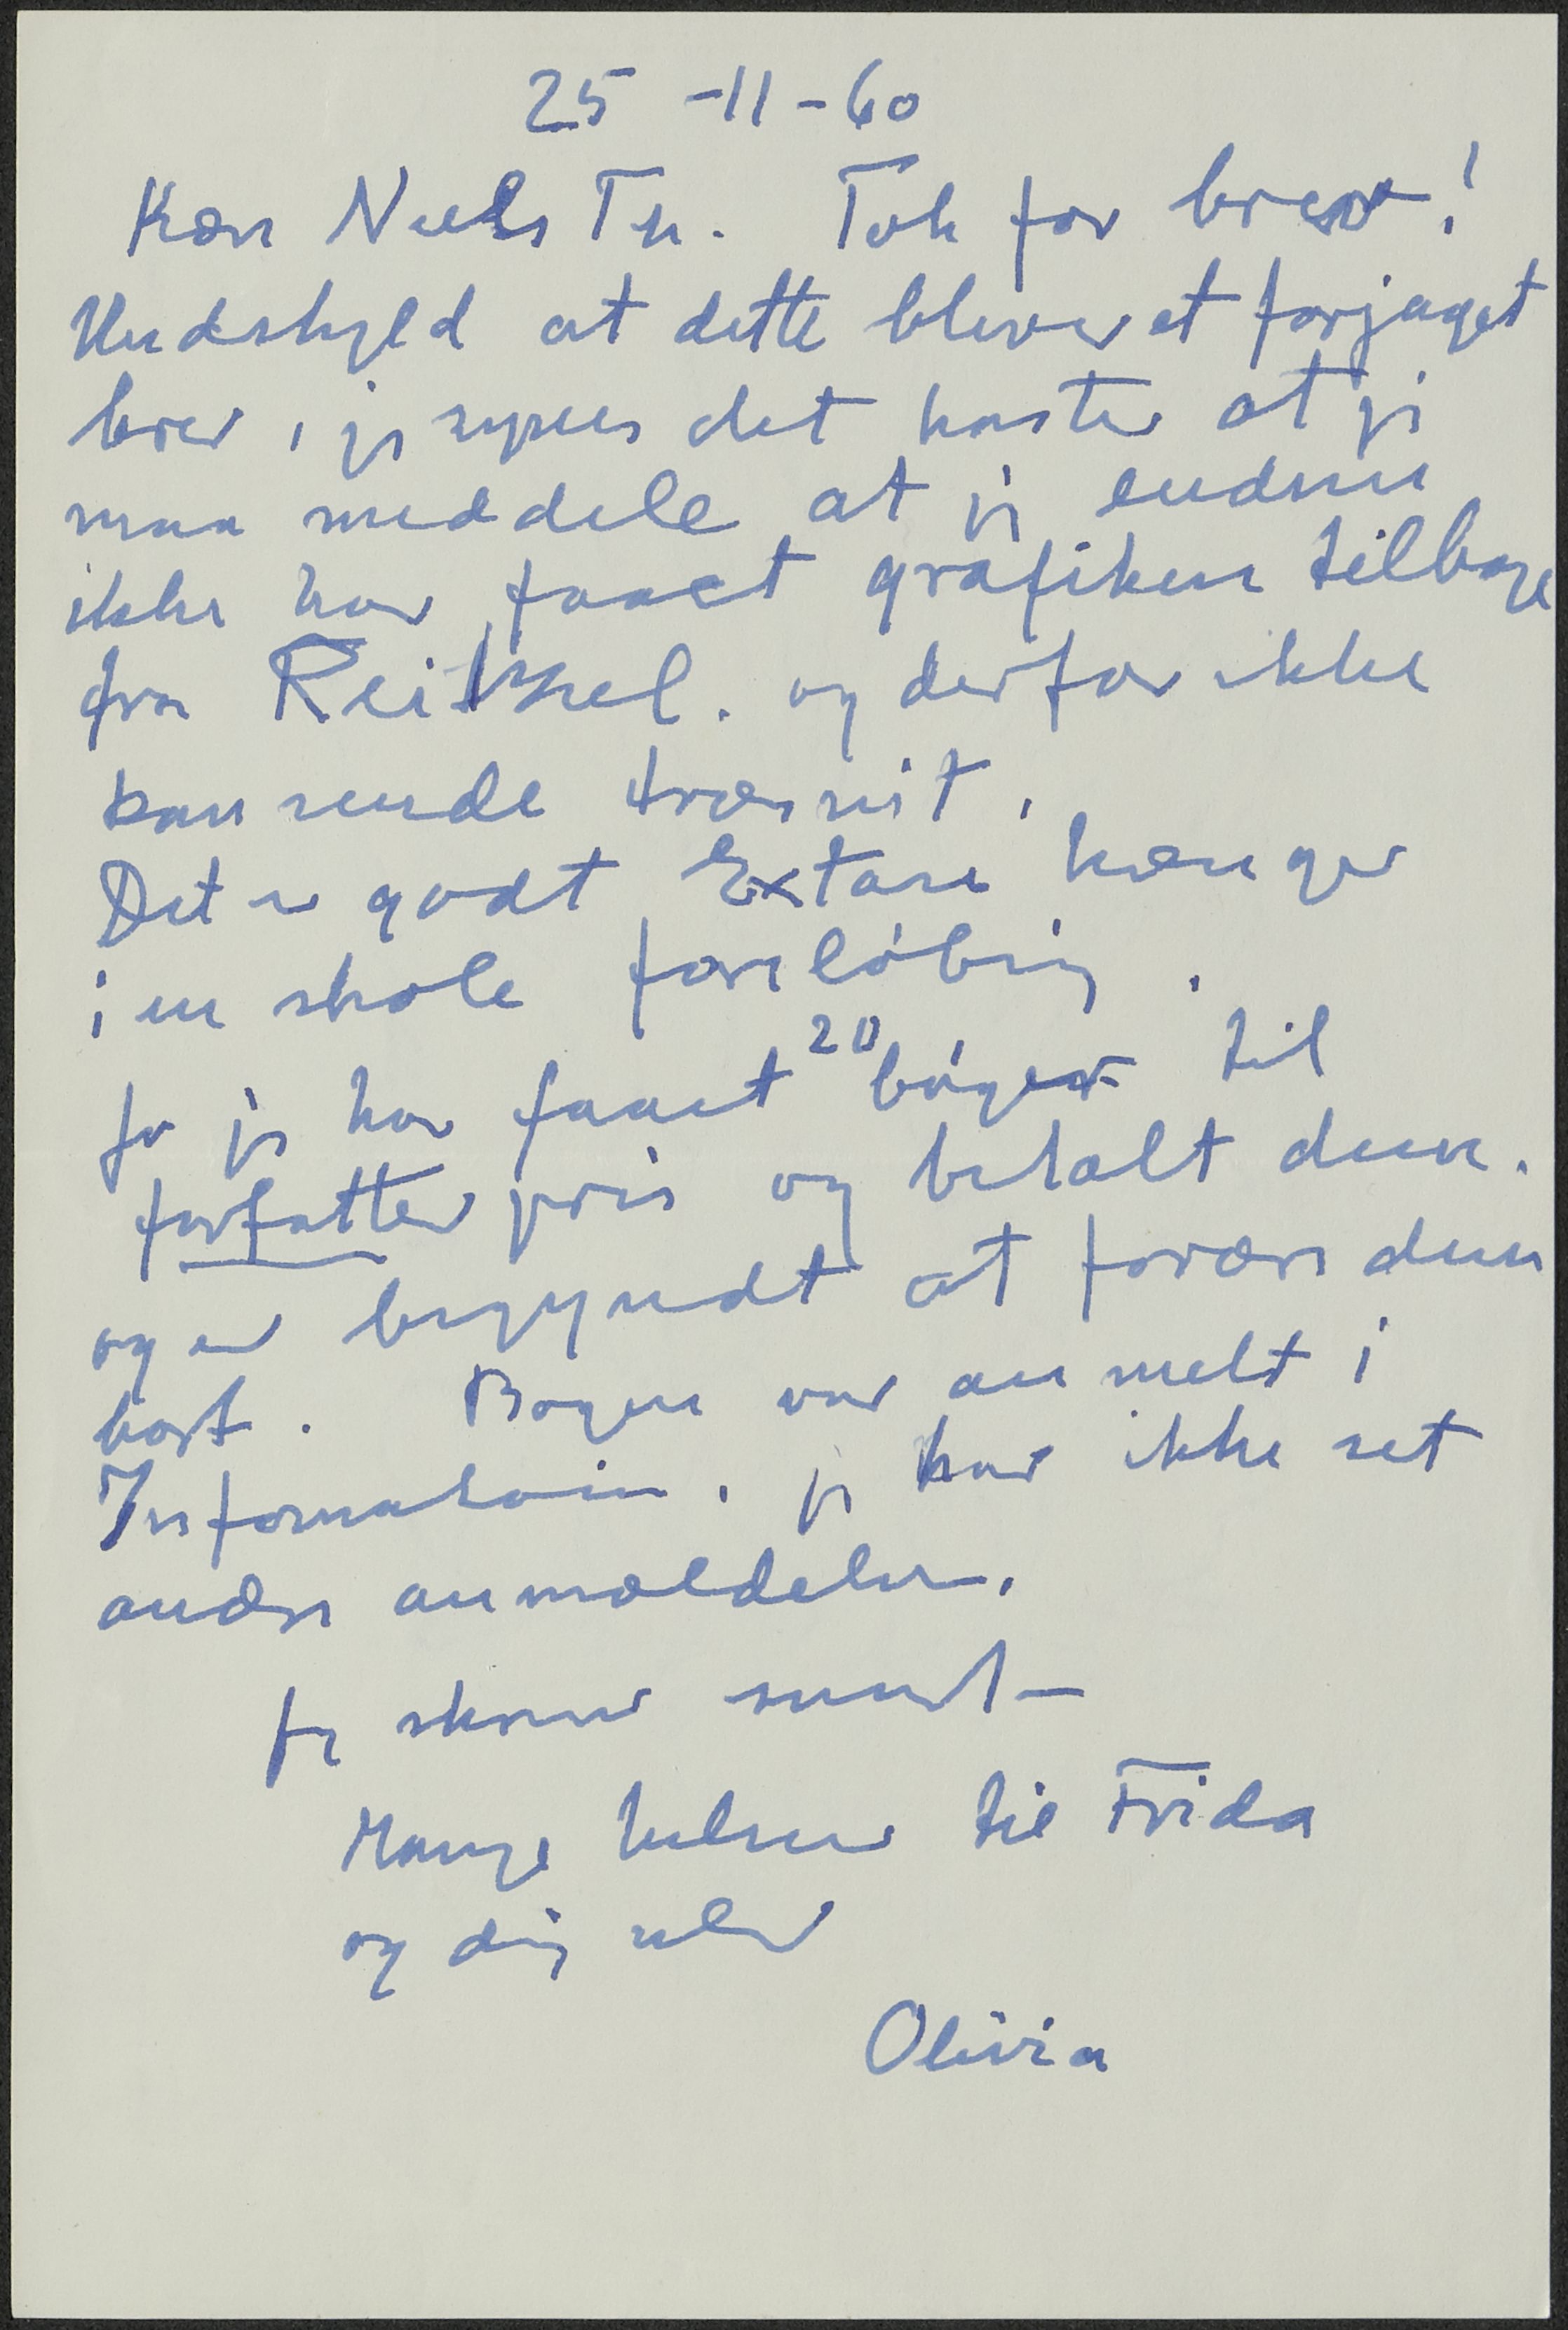 25 - 11 - 60
Kære Niels Th. Tak for brev!
Undskyld at dette bliver et forjaget
brev, jeg synes det haster at jeg
maa meddele at jeg endnu
ikke har faaet grafiken tilbage
fra Reitzel. og derfor ikke
kan sende træsnit.
Det er godt Extase hænger
i en skole foreløbig.
Jo jeg har faaet 20 bøger til
forfatter pris og betalt dem.
og er begyndt at forære dem
bort. Bogen var anmelt i
Information. jeg har ikke set
andre anmeldelser.
Jeg skriver snart –
Mange hilsner til Frida
og dig selv
Olivia